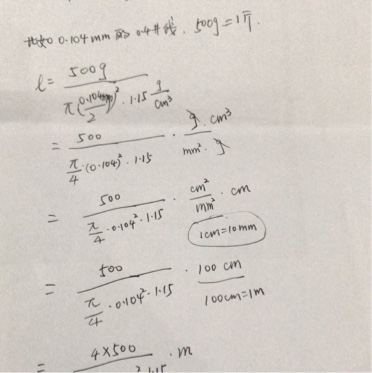 0.104mm 的 0.4# 线, 500g = 1
l = 500g / π(0.104mm/2)² · 1.15 g/cm³
= 500 / π/4 · (0.104)² · 1.15 · g · cm³ / mm² · g
= 500 / π/4 · 0.104² · 1.15 · cm²/mm² · cm
1cm=10mm
= 500 / π/4 · 0.104² · 1.15 · 100 cm
100cm=1m
= 4×500 / ² 1.15 · m